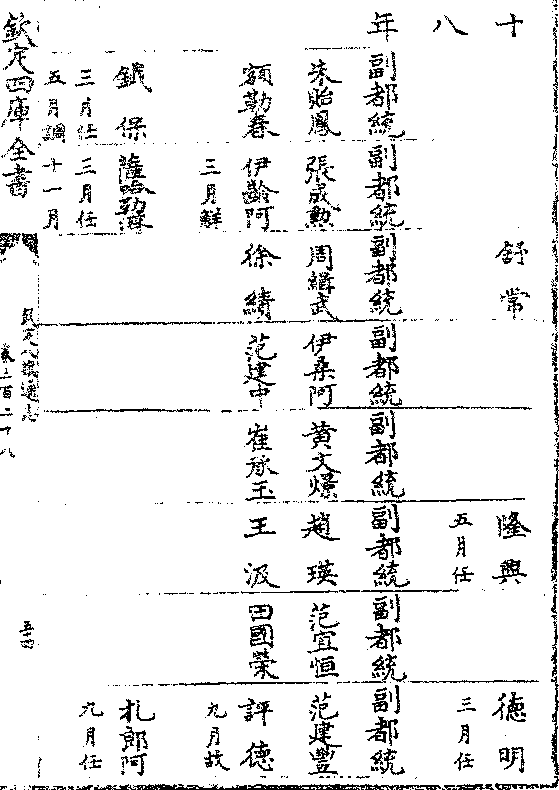 十 舒常 隆興 德明
五月任 三月任
八
年 副都統 副都統 副都統 副都統 副都統 副都統 副都統 副都統
朱貽鳳 張成勲 周緝武 伊桑阿 黃文煜 趙瑛 范宜恒 范建豐
額勒春 伊齡阿 徐績 范建中 崔承玉 王汲 田國榮 評德
三月解 九月故
鐵保 札郎阿
三月任 三月任 九月任
五月調 十一月
欽定四庫全書 欽定八旗通志 百二十八